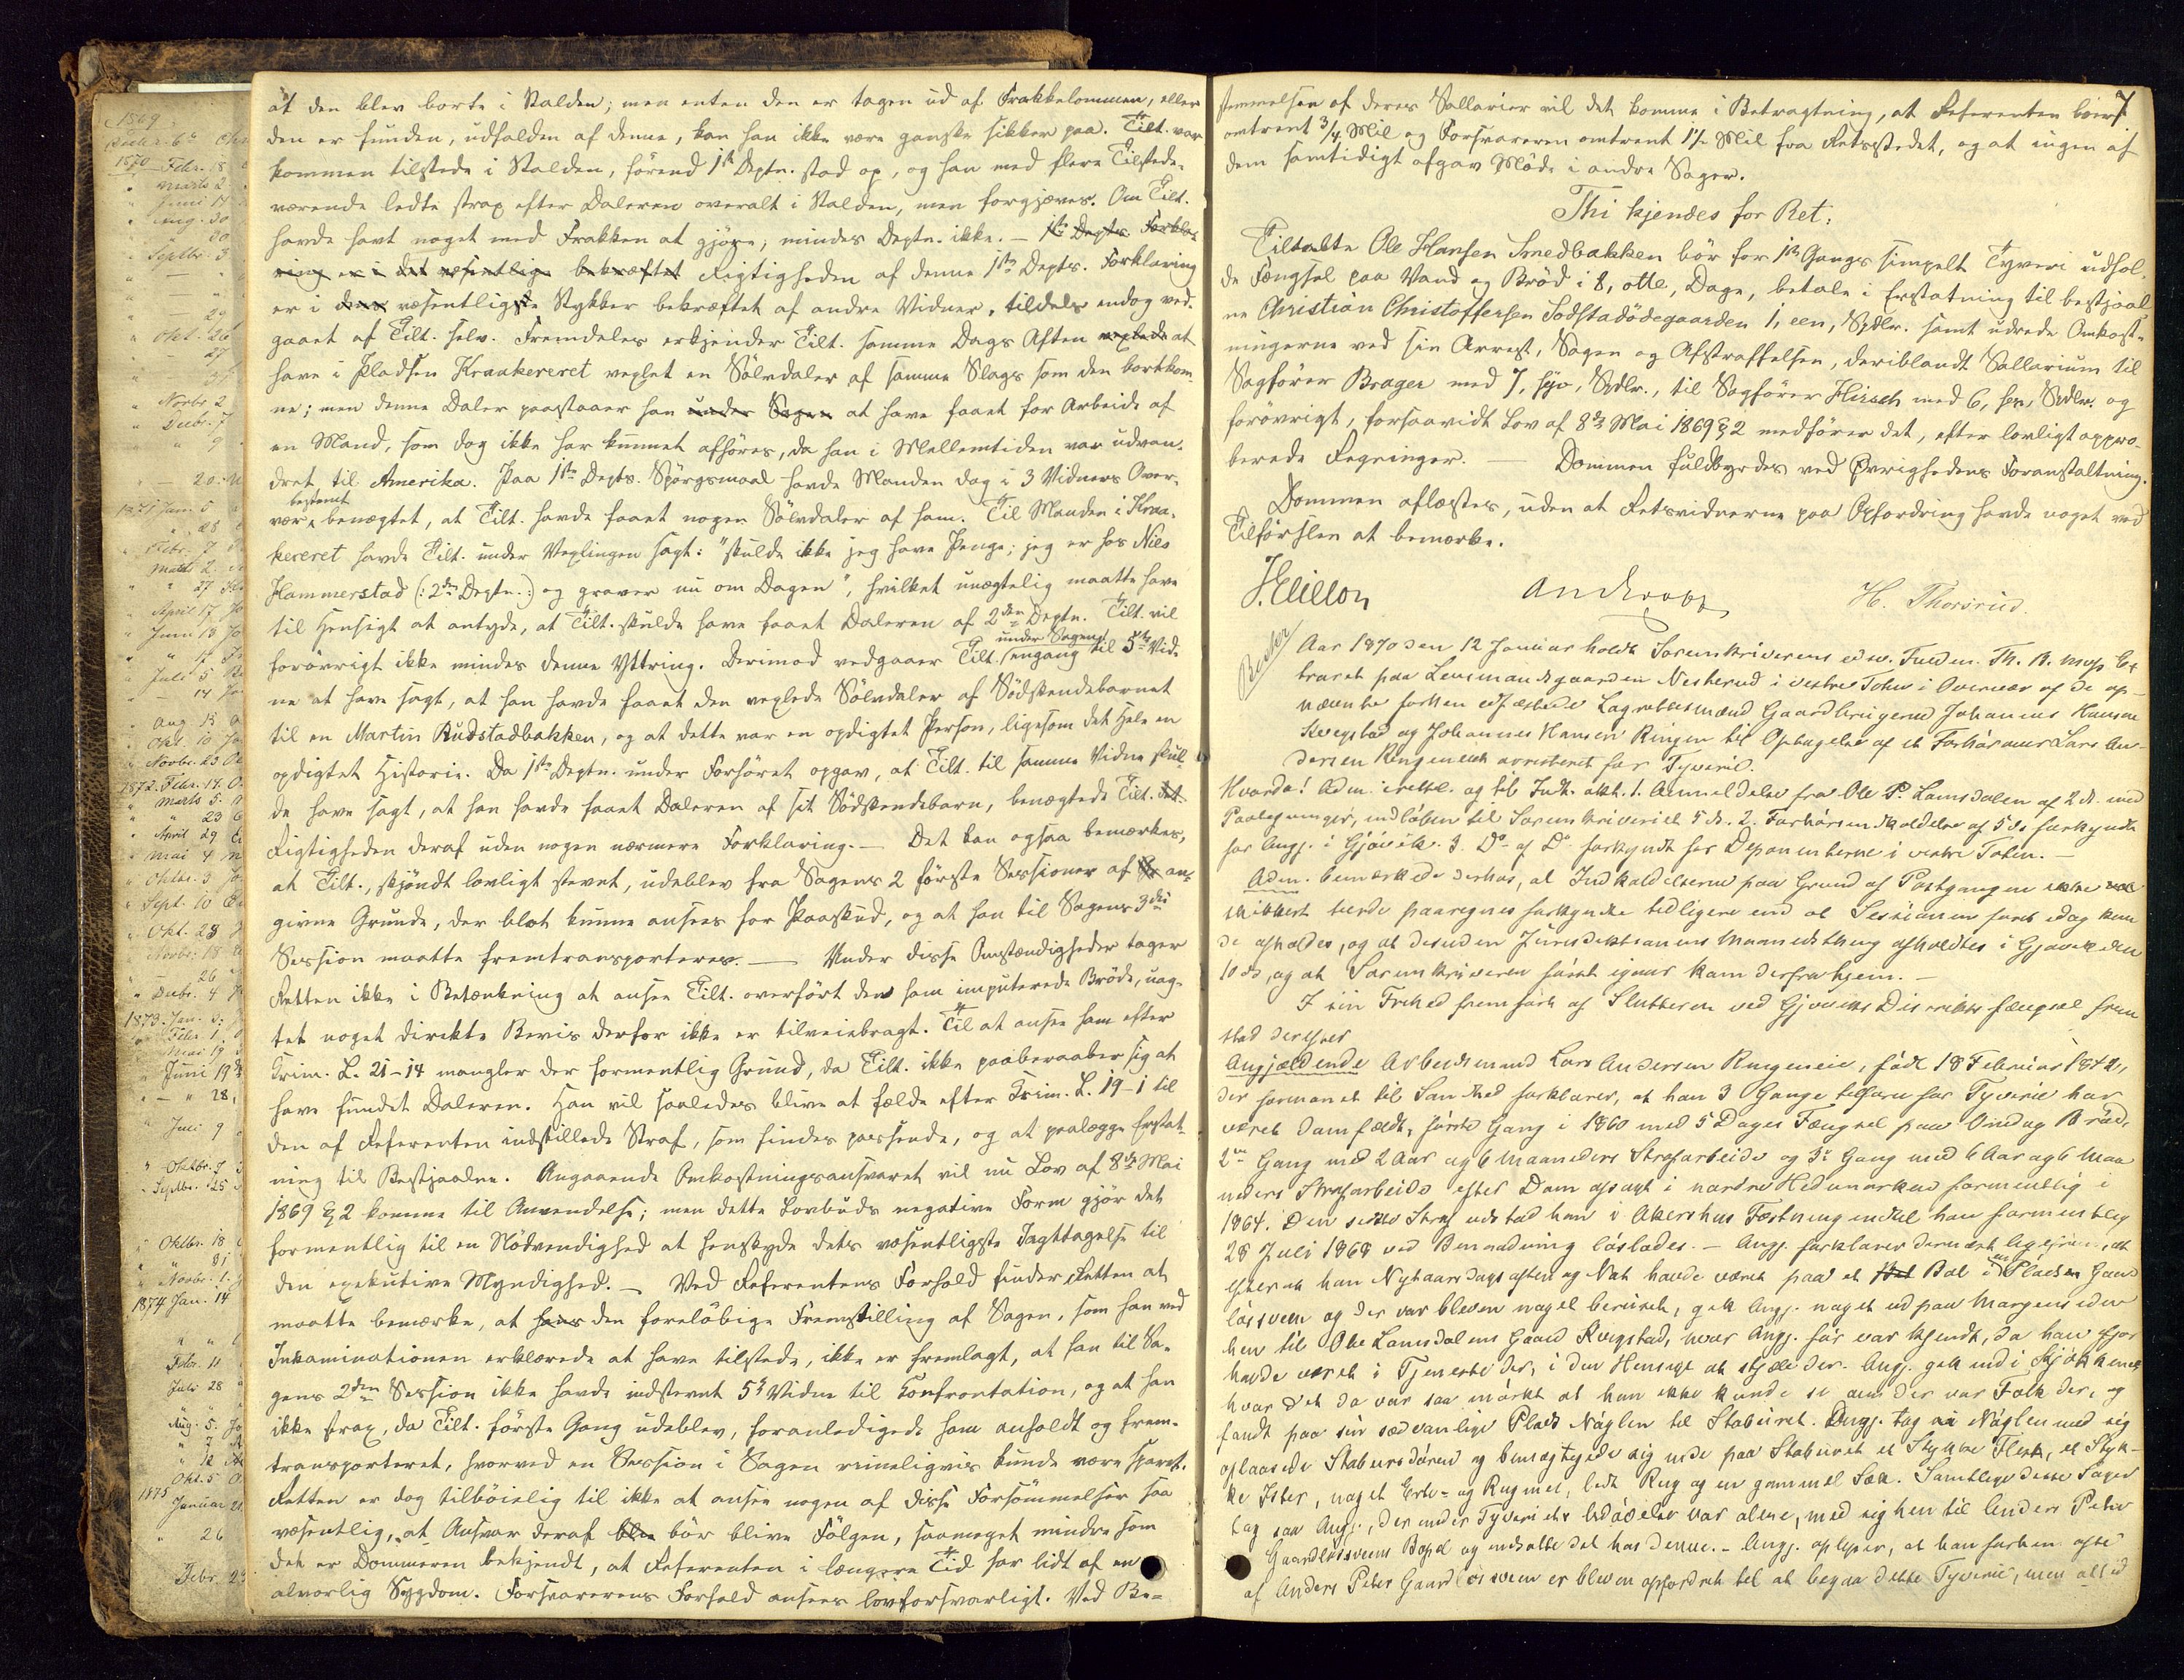 1869
Decbr. 6te
1870 Febr. 18
" Marts 2
" Juni 17
" Aug. 30
" 30
" Septbr. 3
" — "
" — 29
" Okt. 26
" 27
" 31
" Novbr 2
" Decbr. 7
" 9
" — 20.
1871 Jan. 5
" " 28
" Febr. 7
" Marts 2
" " 27
" April 17
" Juni 13
" " 17
" Juli 5
" — 14
" Aug 15
" Okt. 10
" Novbr. 23
1872. Febr. 17.
" Marts 5.
" " 23
" April 29
" Mai 4
" Oktbr. 3
" Sept. 10
" Okt. 28
" Novbr. 18
" 26
" Decbr. 4
1873. Jan. 3.
" Febr 1
" Mai 19
" Juni 19
" — " 28
" Juli 9
" Oktbr. 7
" Septbr. 25
" Oktbr. 18
" " 31
" Novbr. 1.
1874 Jan. 14
Febr. 11
Juli 28
Aug. 5.
" 7
" 12
Okt. 5
1875
Januar 21
" 26
Febr. 23
at den blev borte i Stalden; men enten den er tagen ud af Frakkelommen, eller
den er funden, udfalden af denne, kan han ikke være ganske sikker paa. Tilt. var
kommen tilstede i Stalden, förend 1ste Deptn. stod op, og han med flere Tilstede-
værende ledte strax efter Daleren overalt i Stalden, men forgjæves. Om Tilt.
havde havt noget med Frakken at gjöre, mindes Deptn. ikke. — 1ste Depts. Forkla-
ring er i det væsentlige bekræftet Rigtigheden af denne 1ste Depts. Forklaring
er i den væsentligste Stykker bekræftet af andre Vidner, tildels endog ved-
gaaet af Tilt. selv. Fremdeles erkjender Tilt. samme Dags Aften vexlede at
have i Pladsen Kraakereret vexlet en Sölvdaler af samme Slags som den bortkom-
ne; men denne Daler paastaaer han under Sagen at have faaet for Arbeide af
en Mand, som dog ikke har kunnet afhöres, da han i Mellemtiden var udvan-
dret til Amerika. Paa 1ste Depts. Spörgsmaal havde Manden dog i 3 Vidners Over-
bestemt
være benægtet, at Tilt. havde faaet nogen Sölvdaler af ham. Til Manden i Kraa-
kereret havde Tilt. under Vexlingen sagt: "skulde ikke jeg have Penge; jeg er hos Nils
Hammerstad (: 2den Deptn. :) og graver nu om Dagen", hvilket unægtelig maatte have
til Hensigt at antyde, at Tilt. skulde have faaet Daleren af 2den Deptn. Tilt. vil
under Sagen
forövrigt ikke mindes denne Yttring. Derimod vedgaaer Tilt. engang til 5te Vid-
ne at have sagt, at han havde faaet den vexlede Sölvdaler af Södskendebarnet
til en Martin Rudstadbakken, og at dette var en opdigtet Person, ligesom det Hele en
opdigtet Historie. Da 1ste Deptn. under Forhöret opgav, at Tilt. til samme Vidne skul-
de have sagt, at han havde faaet Daleren af sit Södskendebarn, benægtede Tilt. det
Rigtigheden deraf uden nogen nærmere Forklaring. — Det kan ogsaa bemærkes,
at Tilt., skjöndt lovligt stevnt, udeblev fra Sagens 2 förste Sessioner af an-
givne Grunde, der blot kunne ansees for Paaskud, og at han til Sagens 3die
Session maatte fremtransporteres. — Under disse Omstændigheder tager
Retten ikke i Betænkning at ansee Tilt. overfört den ham imputerede Bröde, uag-
tet noget direkte Bevis derfor ikke er tilveiebragt. Til at ansee ham efter
Krim. L. 21-14 mangler der formentlig Grund, da Tilt. ikke paaberaaber sig at
have fundet Daleren. Han vil saaledes blive at fælde efter Krim. L. 19-1 til
den af Referenten indstillede Straf, som findes passende, og at paalægge Erstat-
ning til Bestjaalne. Angaaende Omkostningsansvaret vil nu Lov af 8de Mai
1869 § 2 komme til Anvendelse; men dette Lovbuds negative Form gjör det
formentlig til en Nödvendighed at henskyde dets væsentligste Iagttagelse til
den exekutive Myndighed. — Ved Referentens Forhold finder Retten at
maatte bemærke, at hans den forelöbige Fremstilling af Sagen, som han ved
Inkaminationen erklærede at have tilstede, ikke er fremlagt, at han til Sa-
gens 2den Session ikke havde indstevnt 5te Vidne til Konfrontation, og at han
ikke strax, da Tilt. förste Gang udeblev, foranledigede ham anholdt og frem-
transporteret, hvorved en Session i Sagen rimeligvis kunde være sparet.
Retten er dog tilböielig til ikke at ansee nogen af disse Forsömmelser saa
væsentlig, at Ansvar deraf blev bör blive Fölgen, saameget mindre som
det er Dommeren bekjendt, at Referenten i længere Tid har lidt af en
alvorlig Sygdom. Forsvarerens Forhold ansees lovforsvarligt. Ved Be-
7
stemmelsen af deres Sallarier vil det komme i Betragtning, at Referenten boer
omtrent 3/4 Mil og Forsvareren omtrent 1 1/2 Mil fra Retsstedet, og at ingen af
dem samtidigt afgav Möde i andre Sager.
Thi kjendes for Ret:
Tiltalte Ole Hansen Smedbakken bör for 1ste Gangs simpelt Tyveri udhol-
de Fængsel paa Vand og Bröd i 8, otte, Dage, betale i Erstatning til bestjaal-
ne Christian Christoffersen Sodstadödegaarden 1, een, Spdlr. samt udrede Omkost-
ningerne ved sin Arrest, Sagen og Afstraffelsen, deriblandt Sallarium til
Sagförer Brager med 7, syv, Spdlr., til Sagförer Hirsch med 6, sex, Spdlr. og
forövrigt, forsaavidt Lov af 8de Mai 1869 § 2 medförer det, efter lovligt appro-
berede Regninger. — Dommen fuldbyrdes ved Øvrighedens Foranstaltning.
Dommen oplæstes, uden at Retsvidnerne paa Opfordring havde noget ved
Tilförslen at bemærke.
H. Thorsrud.
Aar 1870 den 12 Januar holdt Sorenskriverens edsv. Fuldm. Th. R. Ex
traret paa Lensmandsgaarden Nesterud i vestre Toten i Overvær af de op-
nævnte forhen edfæstede Lagrettesmænd Gaardbrugerne Johannes Hansen
Kvegstad og Johannes Hansen Ringen til Optagelse af et Forhör over Lars An-
dersen Ringeneie arresteret for Tyverie.
Hvorda! Adm. irettel. og til Indt. akt. 1. Anmeldelse fra Ole P. Lamsdalen af 2 ds. med
Paategninger, indløben til Sorenskriveriet 5 ds. 2. Forhörsindkaldelse af 5 ds forkyndt
for Angj. i Gjövik. 3. Do af Do forkyndt for Deponenterne i vestre Toten. —
Adm. bemærkede derhos, at Indkaldelserne paa Grund af Postgangen ikke
sikkert turde paaregnes forkyndte tidligere end at Sessionen först idag kun
de afholdes, og at desuden Jurisdiktionens Maanedsthing afholdtes i Gjövik den
10 ds, og at Sorenskriveren först igaar kom derfra hjem. —
I sin Frihed fremfört af Slutteren ved Gjöviks Distriktsfængsel frem
stod derefter
Angjældende Arbeidsmand Lars Andersen Ringeneie, födt 18 Februar 1842,
der formanet til Sandhed forklarer, at han 3 Gange tilforn for Tyverie har
været domfældt, förste Gang i 1860 med 5 Dages Fængsel paa Vand og Bröd,
2den Gang med 2 Aar og 6 Maaneders Strafarbeide og 3die Gang med 6 Aar og 6 Maa
neders Strafarbeide efter Dom afsagt i nordre Hedemarken formentlig i
1864. Den sidste Straf udstod han i Akershus Fæstning indtil han formentlig
28 Juli 1868 ved Benaadning löslodes. — Angj. forklarer dernæst, at
efterat han Nytaarsdags aften og Nat havde været paa et Bal i Pladsen Gaard
lösveen og der var bleven noget beruset, gik Angj. noget ud paa Morgensiden
hen til Ole Lamsdalens Gaard Kvegstad, hvor Angj. för var kjendt, da han ifjor
havde været i Tjeneste der, i den Hensigt at stjæle der. Angj. gik ind i Kjökkenet
hvor det da var saa mörkt at han ikke kunde se om der var Folk der, og
fandt paa sin sædvanlige Plads Nöglen til Staburet. Angj. tog Nöglen med sig
oplaasede Stabursdören og bemægtigede sig inde paa Staburet et Stykke Flesk, et Styk-
ke Ister, noget Erte- og Rugmel, lidt Rug og en gammel Sæk. Samtlige disse Sager
tog saa Angj., der under Tyveriets Udövelse var alene, med sig hen til Anders Peter
Gaardlösveens Bopel og indsatte det hos denne. — Angj. oplyser, at han forhen ofte
af Anders Peter Gaardlösveen er bleven opfordret til at begaa dette Tyverie, men altid